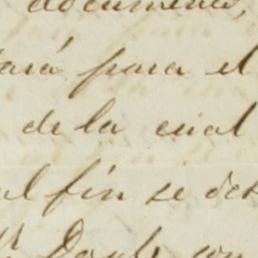 documento,
ará para el
de la cual
al fin se des
con